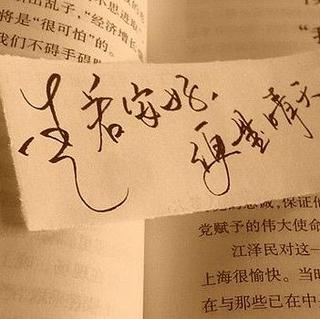 出乱子，“经济增长
将是“很可怕”的。
我们不碍手碍
你若安好，
便是晴天
党赋予的伟大使命
江泽民对这一
上海很愉快。当
在与那些已在中